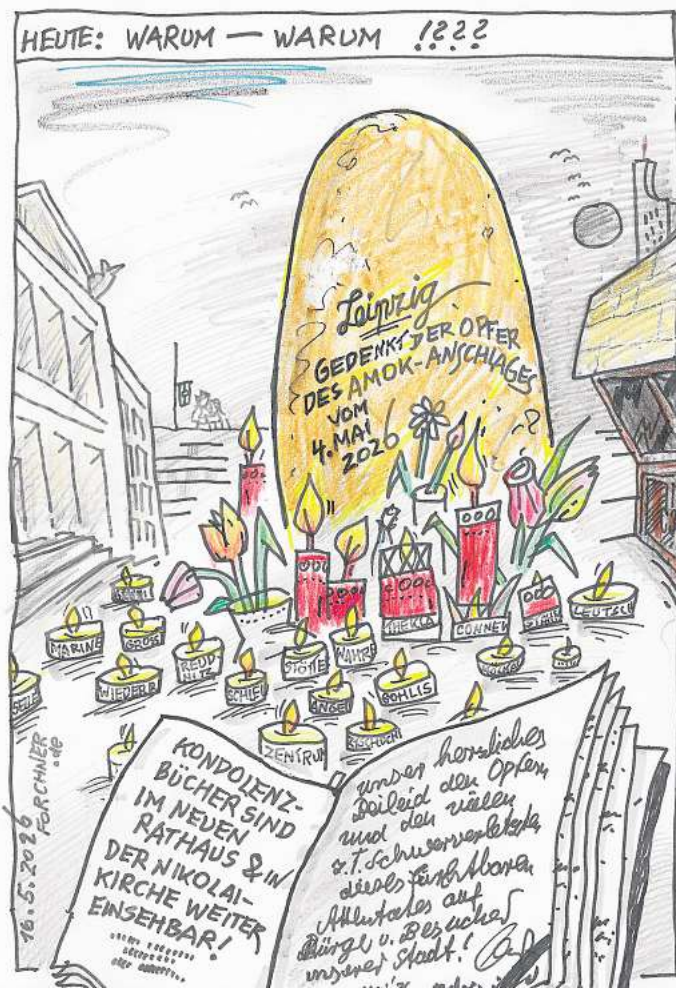 HEUTE: WARUM — WARUM !???
Leipzig
GEDENKT DER OPFER
DES AMOK-ANSCHLAGES
VOM
4. MAI
2026
LEUTSCH
THEKLA
CONNEW
MARINE
GROSS
REUD
NITZ
STÖTTE
WAHRE
WIEDERR
SCHLEU
ANGER
GOHLIS
ZENTRUM
KONDOLENZ-
BÜCHER SIND
IM NEUEN
RATHAUS & IN
DER NIKOLAI-
KIRCHE WEITER
EINSEHBAR!
unser herzliches
Beileid den Opfern
und den vielen
z.T. Schwerverletzten
dieses furchtbaren
Attentates auf
Bürger u. Besucher
unserer Stadt!
16.5.2026 FORCHNER
.de